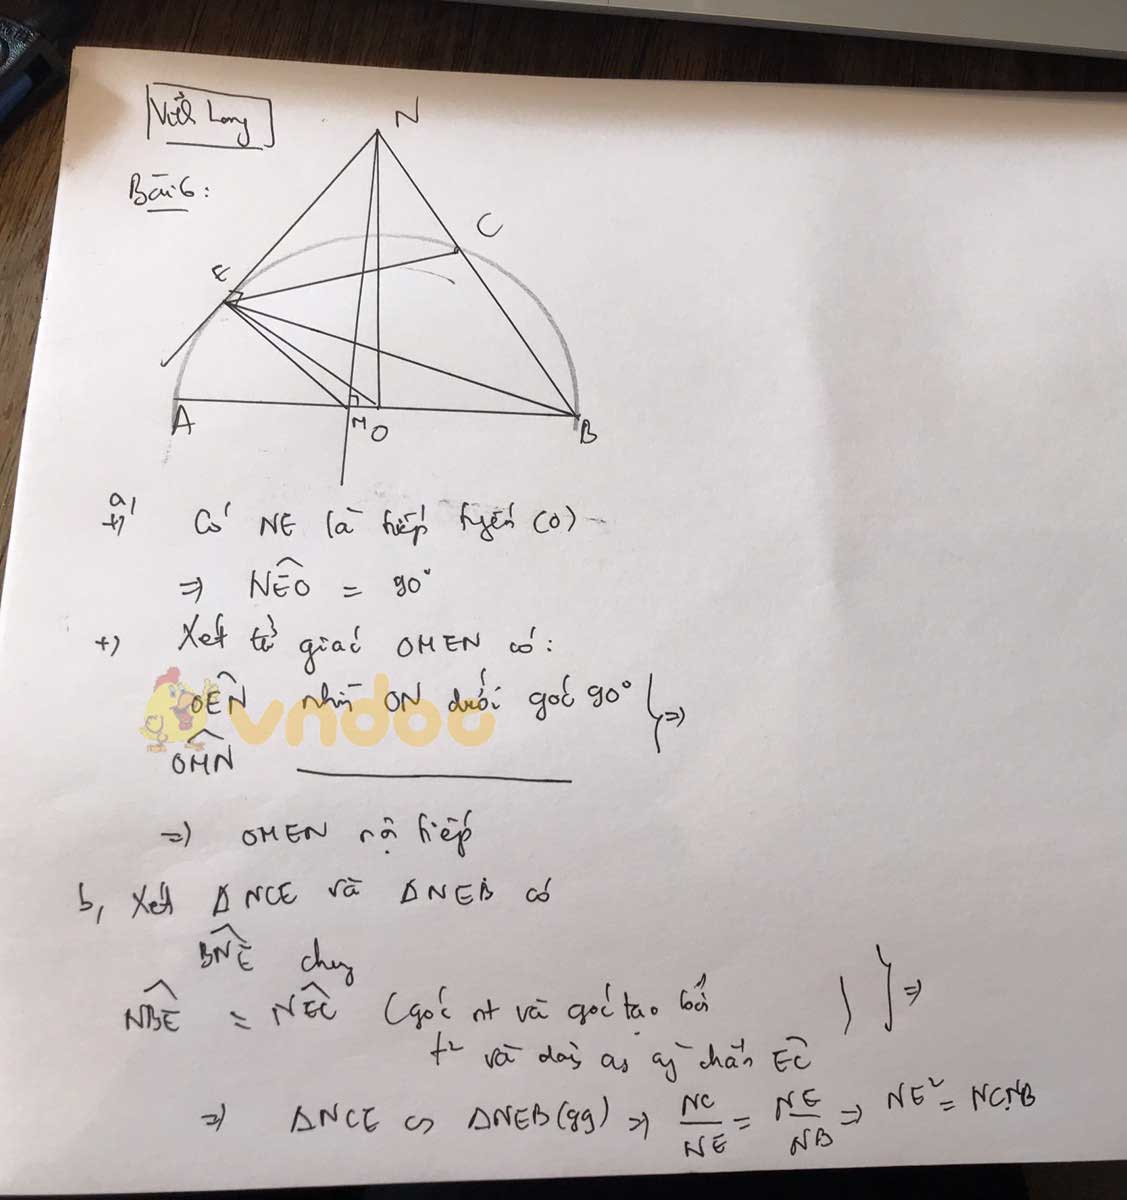 Vĩnh Long
Bài 6:
N
C
E
A
M O
B
a,
+) Có NE là tiếp tuyến (O)
=> NÊO = 90°
+) Xét tứ giác OMEN có:
OÊN nhìn ON dưới góc 90° } =>
vndoc
OMN
=> OMEN nội tiếp
b, Xét Δ NCE và Δ NEB có
BNE chung
NBE = NEC (góc nt và góc tạo bởi } } =>
t² và dây cùng chắn EC
=> ΔNCE ∽ ΔNEB (gg) => NC/NE = NE/NB => NE² = NC.NB